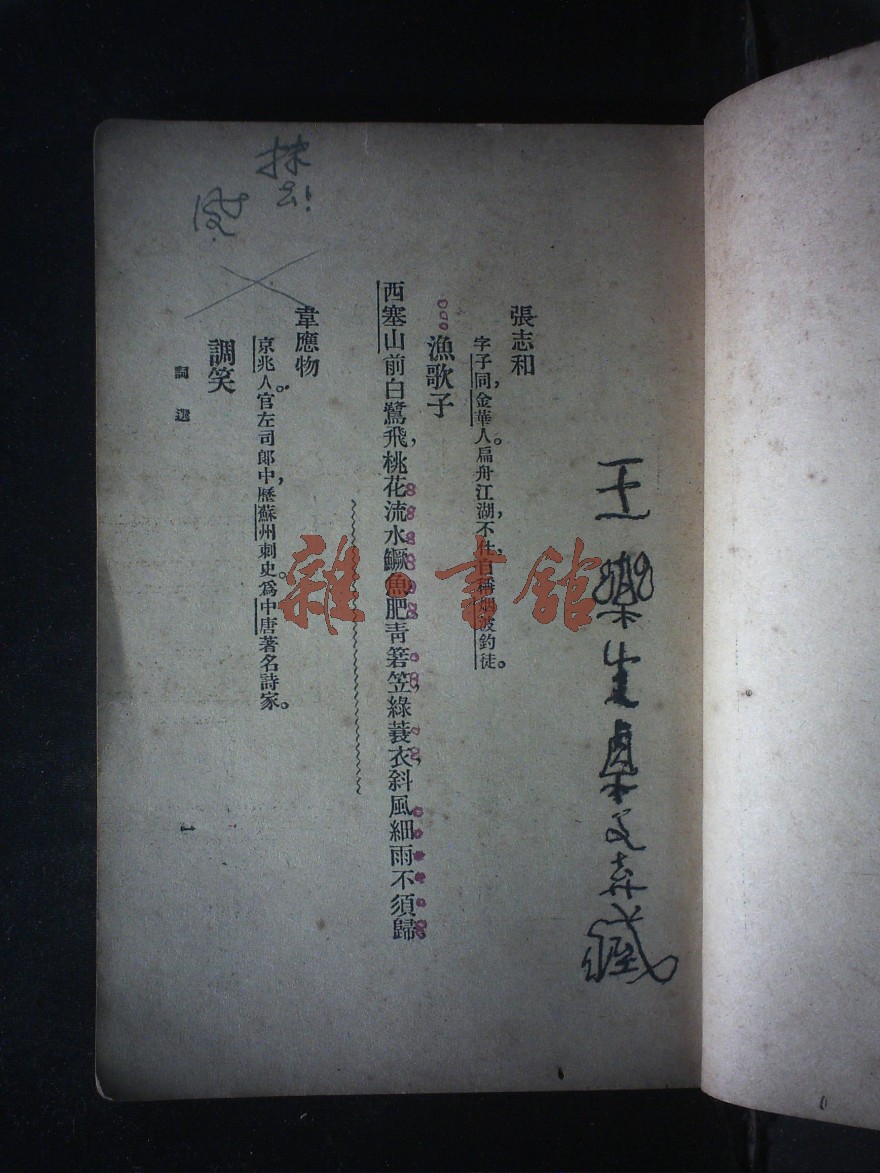 王樂生
張志和
字子同，金華人。扁舟江湖，不仕，自稱烟波釣徒。
漁歌子
西塞山前白鷺飛，桃花流水鱖魚肥青箬笠，綠蓑衣，斜風細雨不須歸
韋應物
京兆人。官左司郎中，歷蘇州刺史。爲中唐著名詩家。
調笑
詞選
一
雜書館